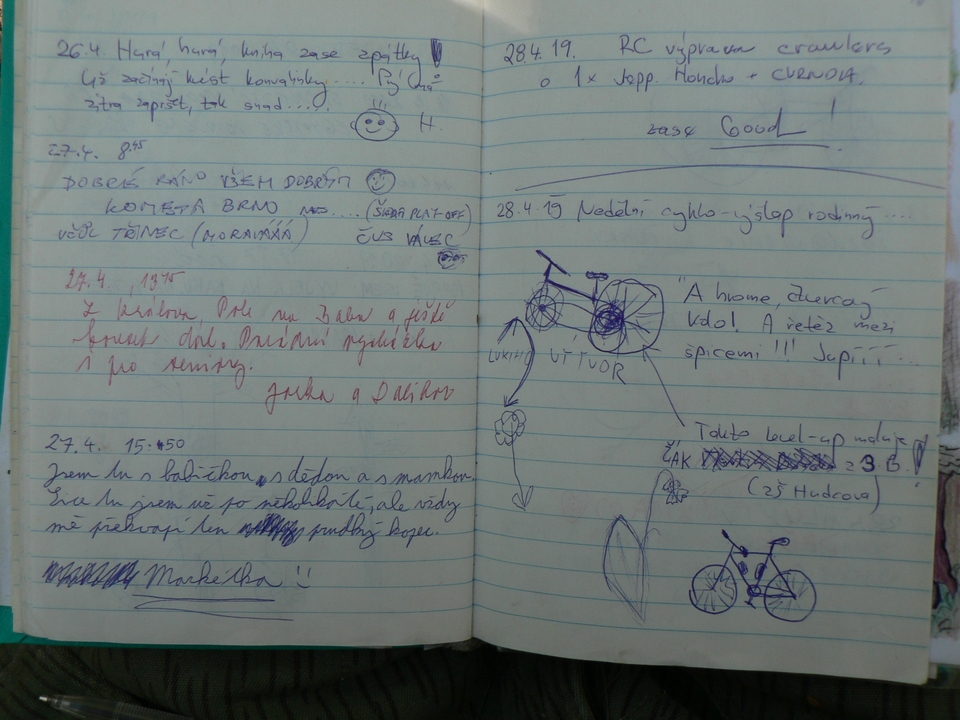 26.4. Hurá, hurá, kniha zase zpátky!
Už začínají kvést konvalinky.....
zítra zapršet, tak snad.....
H.
27.4. 8⁴⁵
DOBRÉ RÁNO VŠEM DOBRÝM
KOMETA BRNO .... (ŠKODA PLAY-OFF)
VČELI TŘINEC (MORAVÁÁÁ) ČUS VÁLEC
27.4. , 13¹⁵
Z Králova Pole na Babu a ještě
kousek dál. Parádní vycházka
i pro seniory.
Jarka a Dalibor
27.4. 15:50
Jsem tu s babičkou, s dědou a s mamkou.
Sice tu jsem už po několikáté, ale vždy
mě překvapí ten prudký kopec.
Markétka
28.4.19. RC výprava crawlera
1x Jepp. Honcho +
zase Good!
28.4.19 Nedělní cyklo-výšlap rodinný ....
"A hrome,
kdo! A řetěz mezi
špicemi!!! Jupííí...
VÝTVOR
Takto level-up maluje
ŽÁK z 3.B.!
(ZŠ Hudcova)